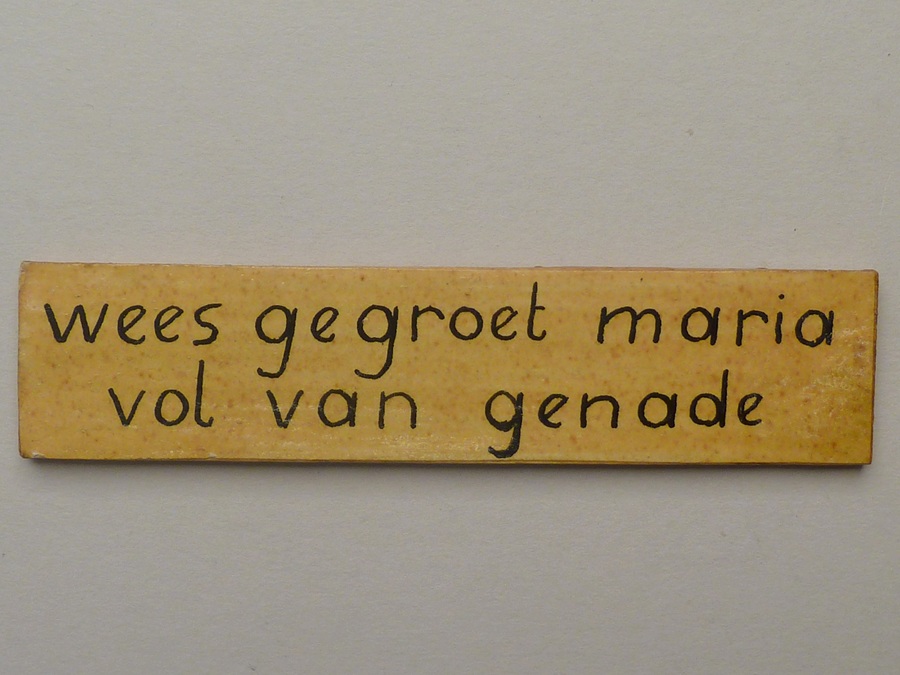 wees gegroet maria
vol van genade